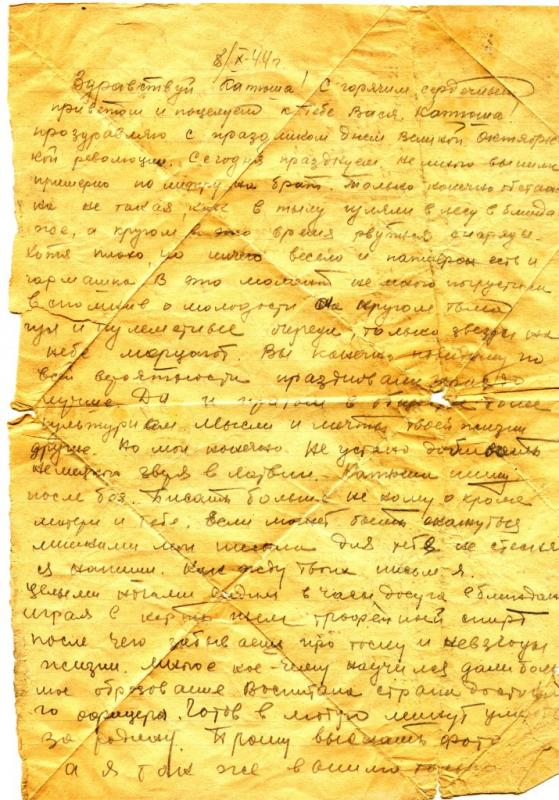 8/XI-44 г.
Здравствуй Катюша! С горячим сердечным
приветом и поцелуем к тебе Вася. Катюша
проздравляю с праздником днем Великой Октябрь
ской революции. Сегодня празднуем не много выпили
примерно по литру на брата. Только конечно обстанов
ка не такая, как в тылу гуляли в лесу в блинда
же, а кругом в это время рвуться снаряды.
Хотя плохо но ничего весело и патефон есть и
гармошка. В это момент не много погрустили
вспомнив о молодости. На кругом тьма
гул и пулеметные очереди, только звезды на
небе мерцают. Вы конечно по
всей вероятности праздновали
лучше. Да и в более
культурном. Мысли и мечты твоей жизни
другие. Но мои конечно. Не устаю добивать
немецкого зверя в Латвии. Катюша пишу
после боя. Писать больше не кому о кроме
матери и тебе. Если может быть окажуться
лишними мои письма для тебя не стесняй
ся напиши. Как жду твоих писем я.
Целыми ночами сидим в часы досуга в блиндаже
играя в карты пьем трофейный спирт
после чего забываем про тоску и невзгоды
жизни. Многое кое-чему научился дали боль
шое образование Воспитала страна достойно
го офицера. Готов в любую минут умер
за родину. Прошу выслать фото
а я так же вышлю